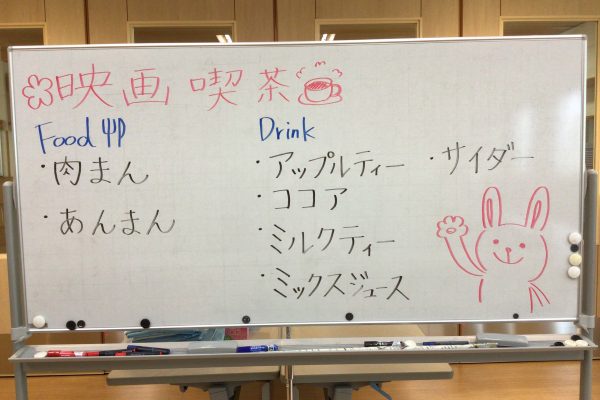 映画喫茶
Food
・肉まん
・あんまん
Drink
・アップルティー
・ココア
・ミルクティー
・ミックスジュース
・サイダー